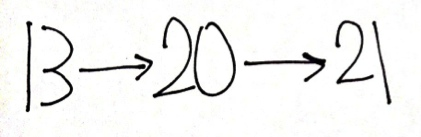 13→20→21